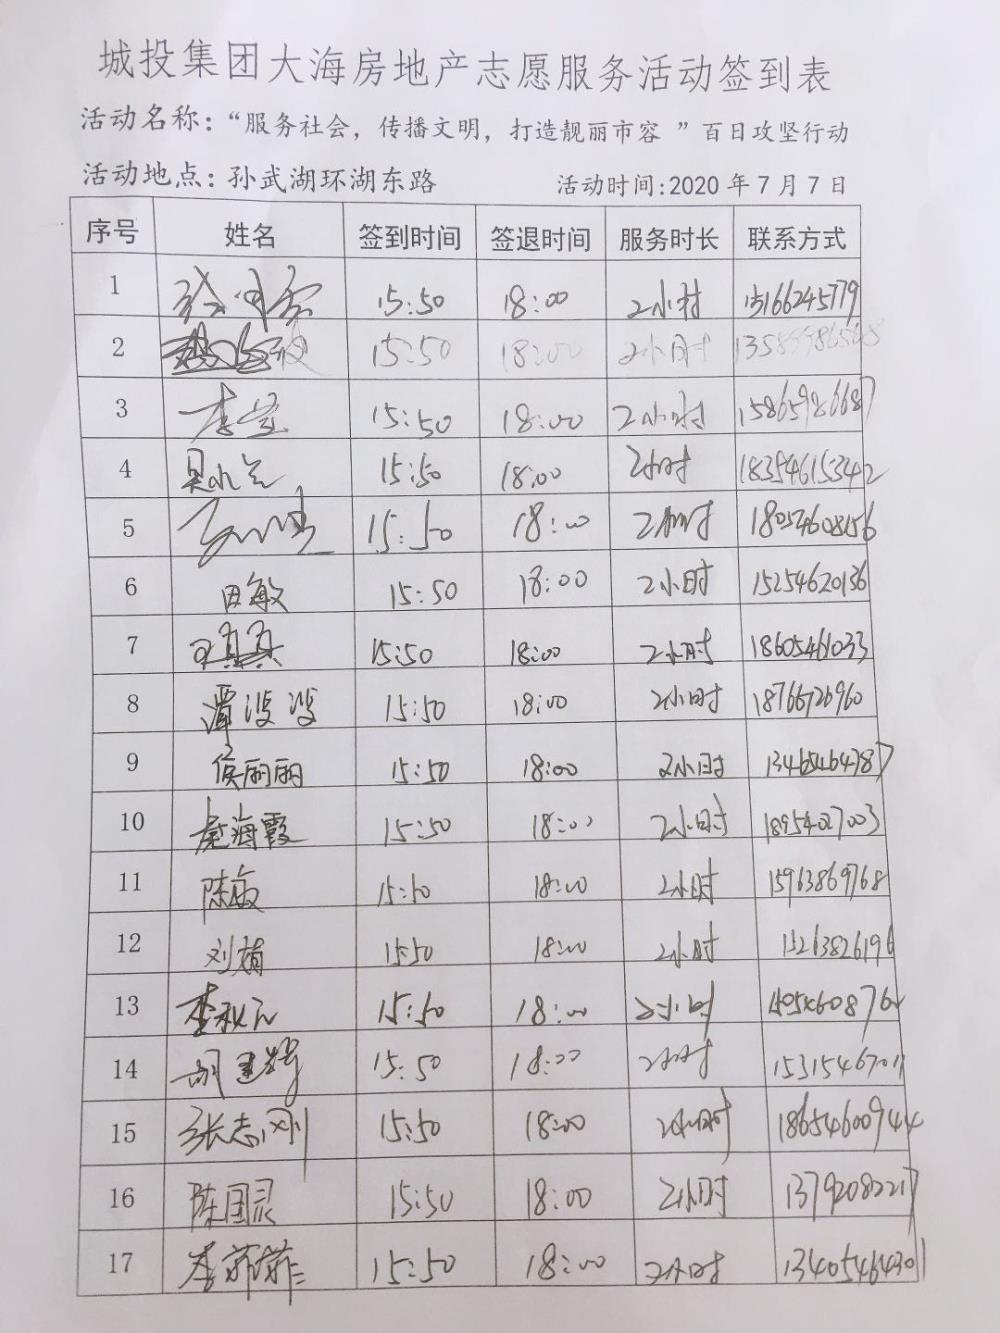 城投集团大海房地产志愿服务活动签到表
活动名称：“服务社会，传播文明，打造靓丽市容 ”百日攻坚行动
活动地点：孙武湖环湖东路 活动时间:2020 年 7 月 7 日
序号 姓名 签到时间 签退时间 服务时长 联系方式
1 15:50 18:00 2小时 15166245779
2 15:50 18:00 2小时
3 15:50 18:00 2小时 15865926687
4 15:50 18:00 2小时 18354615342
5 15:50 18:00 2小时 18054608156
6 田敏 15:50 18:00 2小时 15254620136
7 15:50 18:00 2小时 18605461033
8 谭波波 15:50 18:00 2小时 18766726960
9 侯丽丽 15:50 18:00 2小时 13465464787
10 秦海霞 15:50 18:00 2小时 18954027003
11 陈敏 15:50 18:00 2小时 15963869768
12 刘娟 15:50 18:00 2小时 15263826196
13 15:50 18:00 2小时
14 胡建辉 15:50 18:00 2小时 15315467011
15 张志刚 15:50 18:00 2小时 18654600944
16 陈国灵 15:50 18:00 2小时 13792082217
17 李菲菲 15:50 18:00 2小时 13405464301